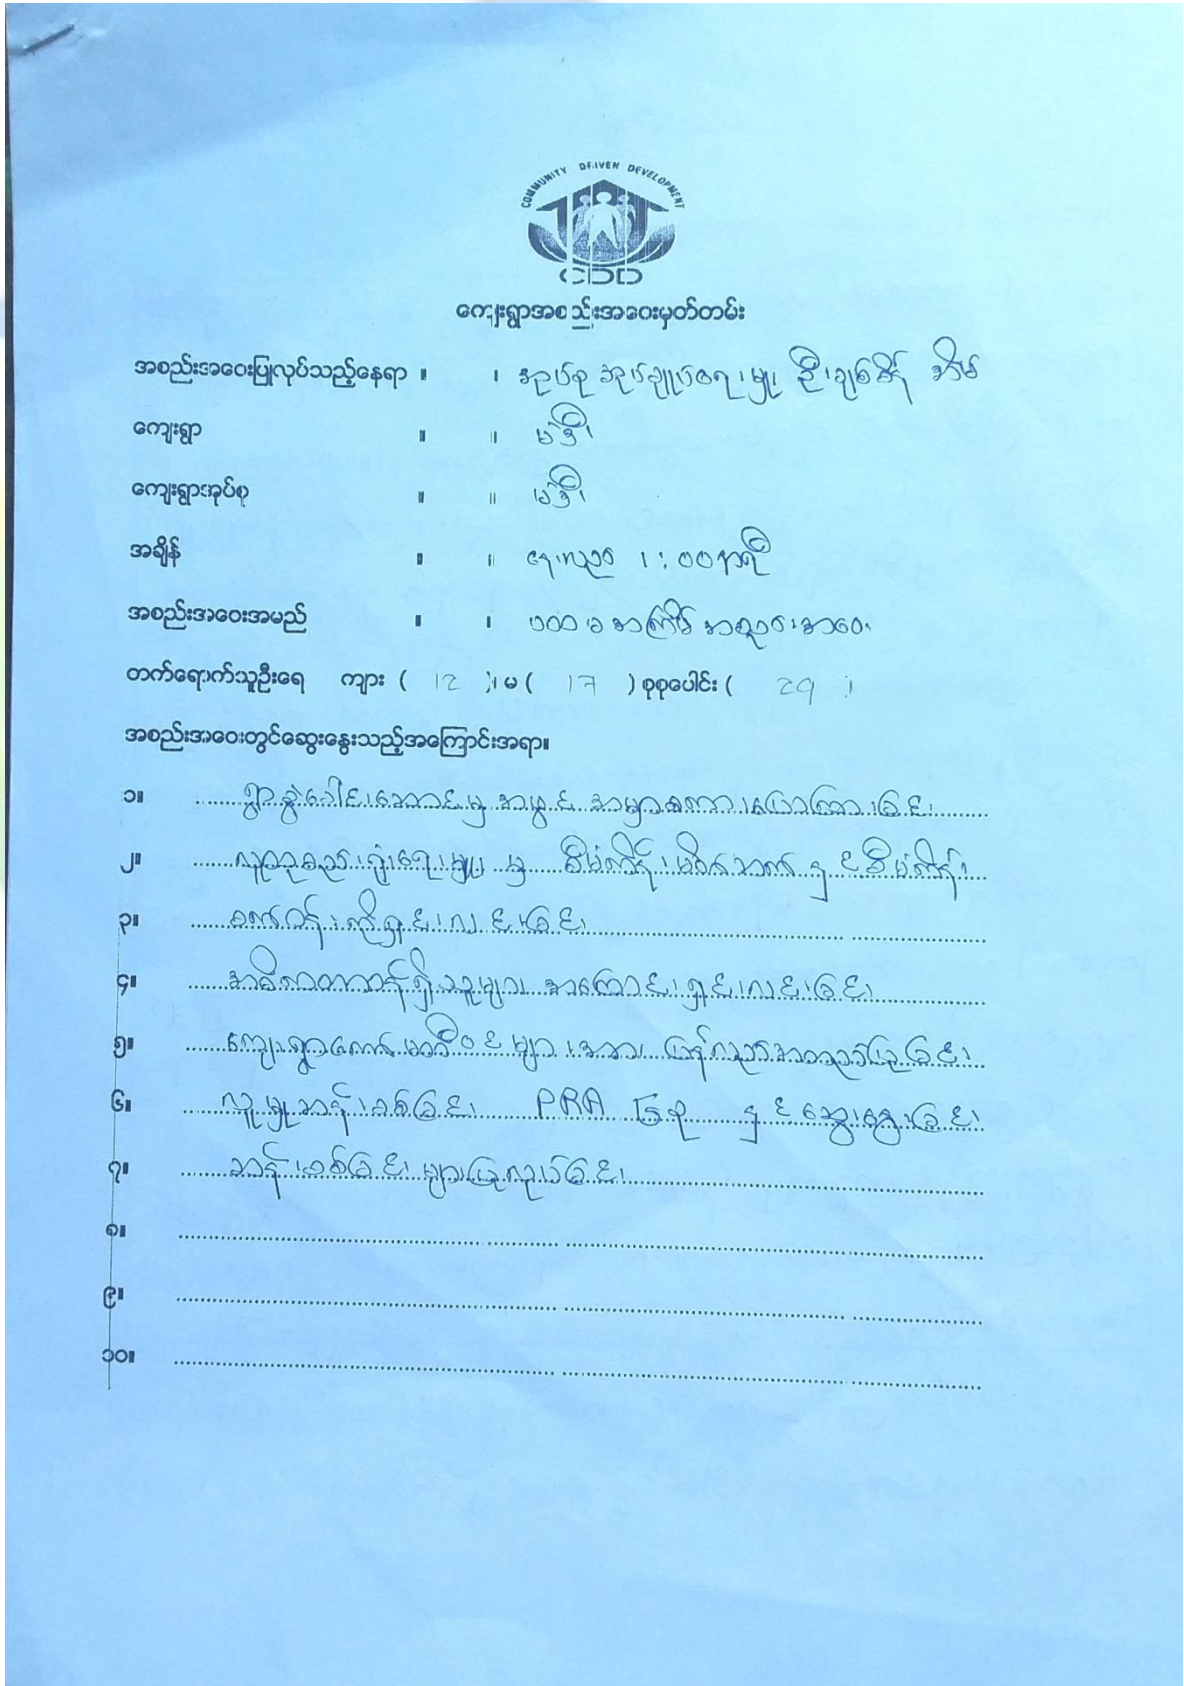 COMMUNITY DRIVEN DEVELOPMENT
CDD
ကျေးရွာအစည်းအဝေးမှတ်တမ်း
အစည်းအဝေးပြုလုပ်သည့်နေရာ ။ ။ အုပ်စု အုပ်ချုပ်ရေးမှူး ဦးချစ်စိန် အိမ်
ကျေးရွာ ။ ။ မဲဒီး
ကျေးရွာအုပ်စု ။ ။ မဲဒီး
အချိန် ။ ။ နေ့လည် ၁:၀၀နာရီ
အစည်းအဝေးအမည် ။ ။ ပထမ အကြိမ် အစည်းအဝေး
တက်ရောက်သူဦးရေ ကျား ( 12 )၊ မ ( 17 ) စုစုပေါင်း ( 29 )
အစည်းအဝေးတွင်ဆွေးနွေးသည့်အကြောင်းအရာ။
၁။ ရွာခွဲခေါင်းဆောင်မှ အဖွင့် အမှာစကားပြောကြားခြင်း
၂။ လူထုစည်းရုံးရေးမှူး မှ စီမံကိန်းမိတ်ဆက် နှင့် စီမံကိန်း
၃။ စက်ဝန်းကိုရှင်းလင်းခြင်း
၄။ အဓိကတာဝန်ရှိသူများ အကြောင်းရှင်းလင်းခြင်း
၅။ ကျေးရွာကော်မတီဝင်များအား ပြန်လည်အတည်ပြုခြင်း
၆။ လူမှုဆန်းစစ်ခြင်း PRA ပြုစု နှင့်ဆွေးနွေးခြင်း
၇။ ဆန်းစစ်ခြင်းများပြုလုပ်ခြင်း
၈။
၉။
၁၀။